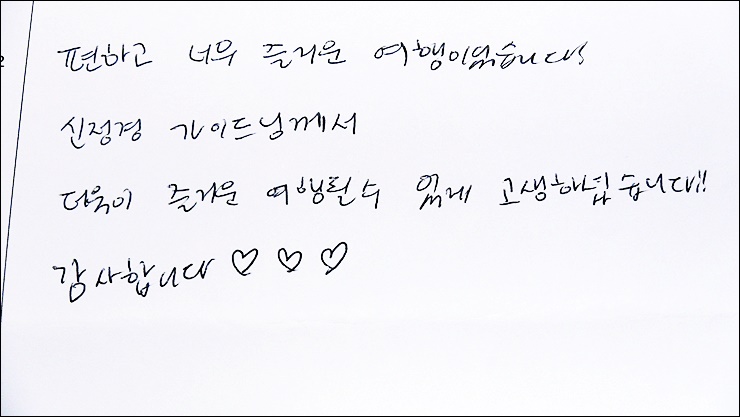 편하고 너무 즐거운 여행이었습니다!
신정경 가이드님께서
더욱이 즐거운 여행될수 있게 고생하셨습니다!!
감사합니다 ♡ ♡ ♡